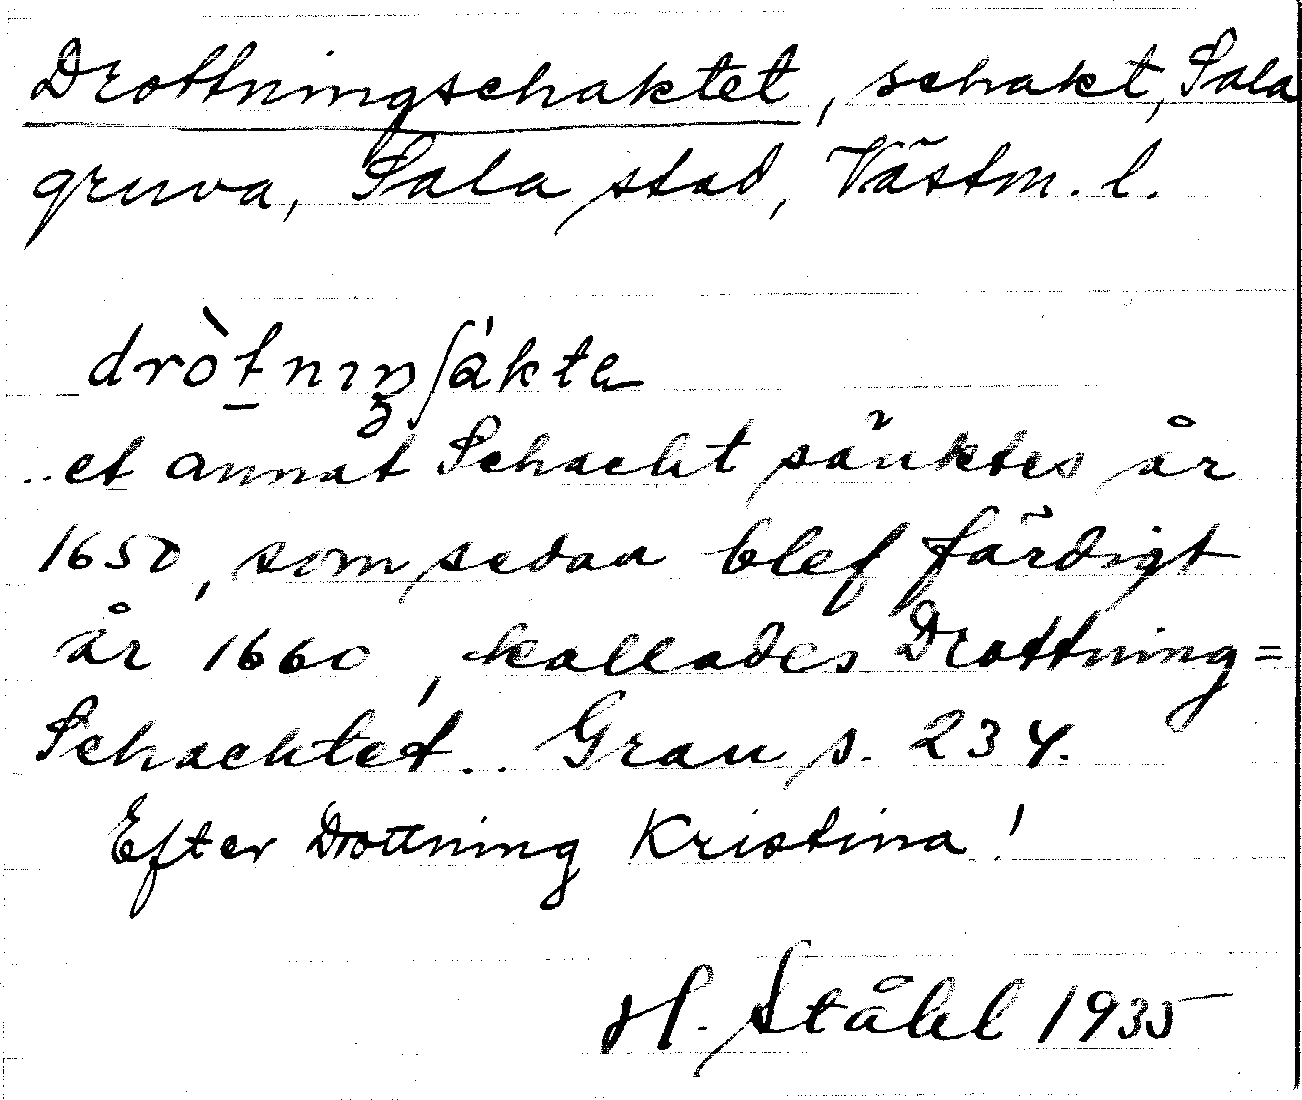 Drottningschaktet, schakt, Sala
gruva, Sala stad, Västm. l.
dròt̲nıŋʃákta
..et annat Schacht sänktes år
1650, som sedan blef färdigt
år 1660, kallades Drottning=
Schachtet.. Grau s. 234.
Efter Drottning Kristina!
H. Ståhl 1935